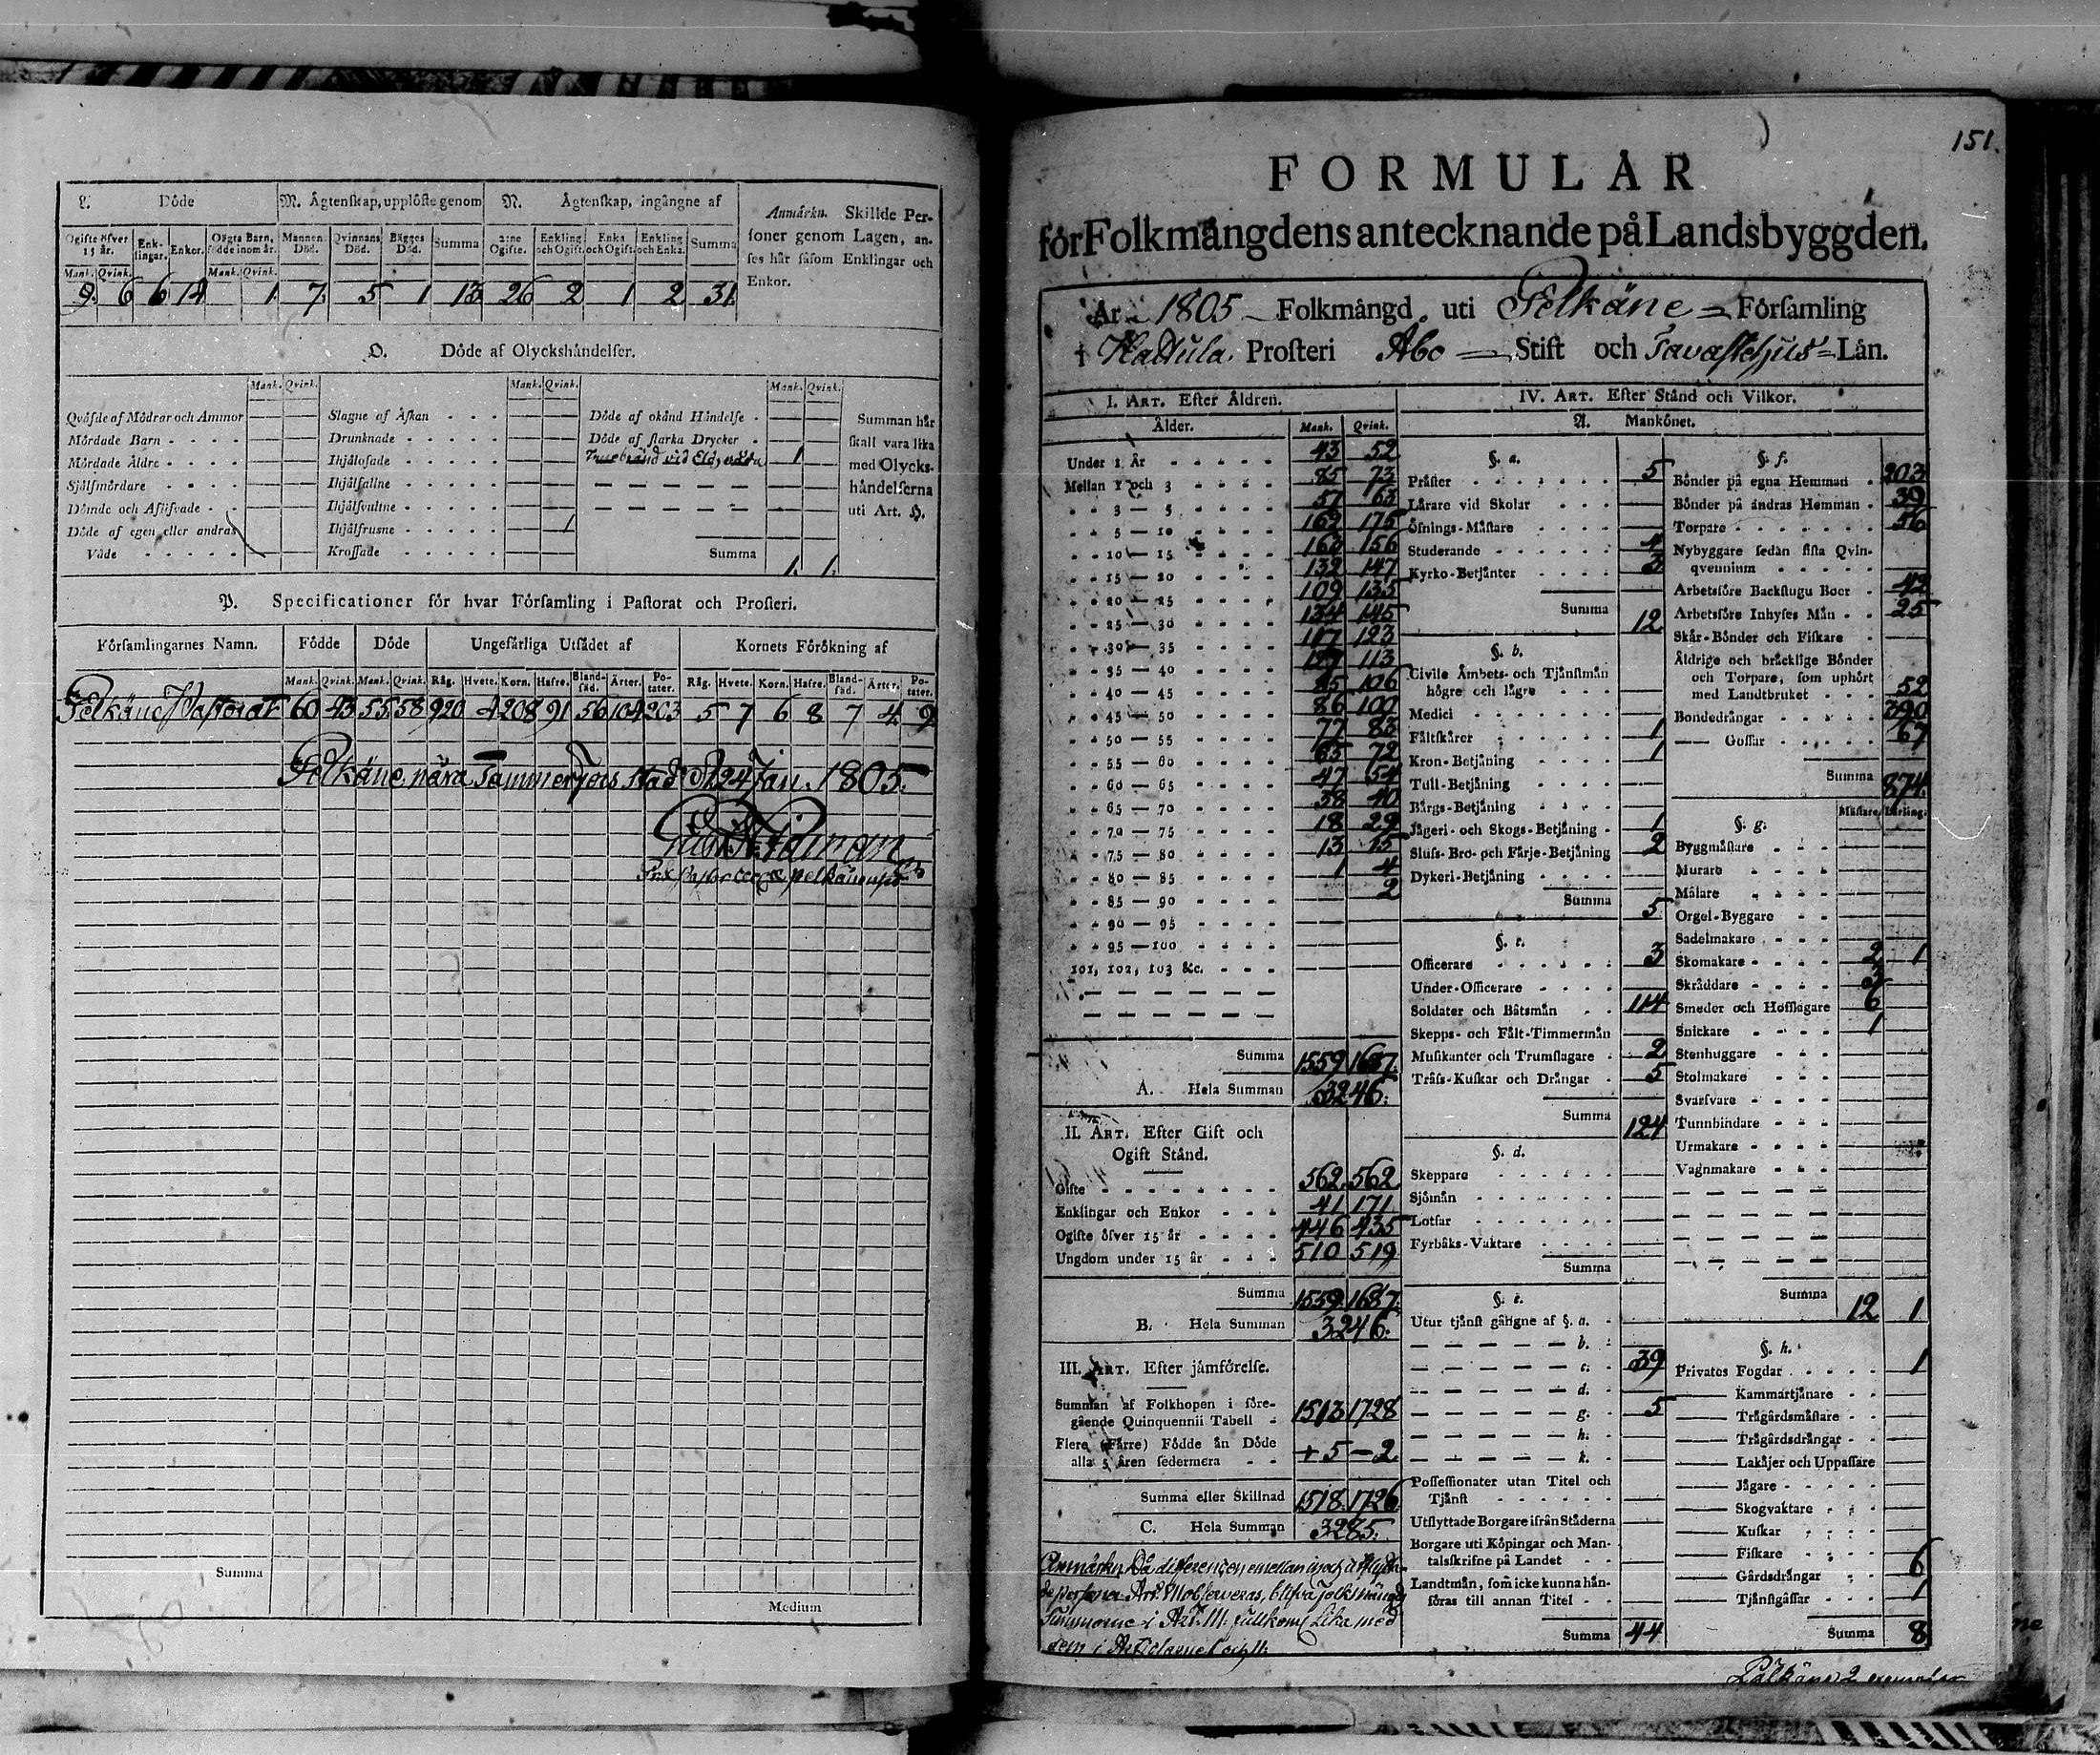 L. Döde
M. Ägtenskap, upplöste genom
N. Ägtenskap, ingångne af
Anmärkn. Skillde Per-
soner genom Lagen, an-
ses här såsom Enklingar och
Enkor.
Ogifte öfver 15 år. Enk-lingar. Enkor. Oägta Barn, födde inom år. Mannens Död. Qvinnans Död. Bägges Död. Summa 2:ne Ogifte. Enkling och Ogift. Enka och Ogift. Enkling och Enka. Summa
Mank. Qvink. Mank. Qvink.
9. 6 6 14 1. 7. 5 1 13 26 2 1 2 31.
O. Döde af Olyckshändelser.
Mank. Qvink. Mank. Qvink. Mank. Qvink.
Qväfde af Mödrar och Ammor
Mördade Barn
Mördade Äldre
Sjelfmördare
Dömde och Aflifvade
Döde af egen eller andras
Våde
Slagne af Åskan
Drunknade
Ihjälosade
Ihjälfallne
Ihjälsvultne
Ihjälfrusne 1
Krossade
Döde af okänd Händelse
Döde af starka Drycker
1
Summa 1. 1.
Summan här
skall vara lika
med Olycks-
händelserna
uti Art. H.
P. Specificationer för hvar Församling i Pastorat och Prosteri.
Församlingarnes Namn. Födde Döde Ungefärliga Utsädet af Kornets Förökning af
Mank. Qvink. Mank. Qvink. Råg. Hvete. Korn. Hafre. Bland-säd. Ärter. Po-tater. Råg. Hvete. Korn. Hafre. Bland-säd. Ärter. Po-tater.
Pelkäne Pastorat 60 43 55 58 920 4 208 91 56 104 203 5 7 6 8 7 4. 9
Pelkäne nära Tammerfors stad d. 24 Jan. 1805.
Summa
Medium
151.
FORMULÄR
för Folkmängdens antecknande på Landsbyggden.
År 1805 Folkmängd uti Pelkäne Församling
i Hattula Prosteri Åbo Stift och Tavastehus Län.
I. ART. Efter Åldren.
Ålder. Mank. Qvink.
Under 1 År 43 52
Mellan 1 och 3 85 73
3 — 5 57 63
5 — 10 162 175
10 — 15 163 156
15 — 20 132 147
20 — 25 109 135
25 — 30 134 145
30 — 35 117 123
35 — 40 113
40 — 45 85 106
45 — 50 86 100
50 — 55 77 83
55 — 60 65 72
60 — 65 47 54
65 — 70 38 40
70 — 75 18 29
75 — 80 13 15
80 — 85 1 4
85 — 90 2
90 — 95
95 — 100
101, 102, 103 &c.
Summa 1559 1687.
A. Hela Summan 3246.
II. ART. Efter Gift och
Ogift Stånd.
Gifte 562. 562
Enklingar och Enkor 41 171
Ogifte öfver 15 år 446 435
Ungdom under 15 år 510 519
Summa 1559. 1687.
B. Hela Summan 3246.
III. ART. Efter jämförelse.
Summan af Folkhopen i före-
gående Quinquennii Tabell 1513 1728
Flere (Färre) Födde än Döde
alla 5 åren sedermera + 5 — 2
Summa eller Skillnad 1518. 1726
C. Hela Summan 3285.
Anmärkn. Då differencen emellan in och utflytta-
de personer Art. observeras, blifva folkmängds
Summorne i Art. III. fullkoml. lika med
dem i Art. I och II.
IV. ART. Efter Stånd och Vilkor.
A. Mankönet.
§. a.
Präster 5
Lärare vid Skolar
Öfnings-Mästare
Studerande 4
Kyrko-Betjänter 3
Summa 12
§. b.
Civile Ämbets- och Tjänstmän
högre och lägre
Medici
Fältskärer 1
Kron-Betjäning 1
Tull-Betjäning
Bärgs-Betjäning
Jägeri- och Skogs-Betjäning 1
Sluss-Bro- och Färje-Betjäning 2
Dykeri-Betjäning
Summa 5
§. c.
Officerare 3
Under-Officerare
Soldater och Båtsmän 114
Skepps- och Fält-Timmermän
Musikanter och Trumslagare 2
Träss-Kuskar och Drängar 5
Summa 124
§. d.
Skeppare
Sjömän
Lotsar
Fyrbåks-Vaktare
Summa
§. e.
Utur tjänst gångne af §. a.
b.
c. 39
d.
g. 5
h.
k.
Possessionater utan Titel och
Tjänst
Utflyttade Borgare ifrån Städerna
Borgare uti Köpingar och Man-
talsskrifne på Landet
Landtmän, som icke kunna hän-
föras till annan Titel
Summa 44
§. f.
Bönder på egna Hemman 203
Bönder på andras Hemman 39
Torpare 56
Nybyggare sedan sista Qvin-
qvennium
Arbetsföre Backstugu Boer 42
Arbetsföre Inhyses Män 25
Skär-Bönder och Fiskare
Äldrige och bräcklige Bönder
och Torpare, som uphört
med Landtbruket 52
Bondedrängar 390
— Gossar 67
Summa 874.
Mästare. Lärling.
§. g.
Byggmästare
Murare
Målare
Orgel-Byggare
Sadelmakare
Skomakare 2 1
Skräddare 3
Smeder och Hofslagare 6
Snickare 1
Stenhuggare
Stolmakare
Svarfvare
Tunnbindare
Urmakare
Vagnmakare
Summa 12 1
§. h.
Privates Fogdar 1
— Kammartjänare
— Trägårdsmästare
— Trägårdsdrängar
— Lakäjer och Uppassare
— Jägare
— Skogvaktare
— Kuskar
— Fiskare
— Gårdsdrängar 6
— Tjänstgåssar 1
Summa 8